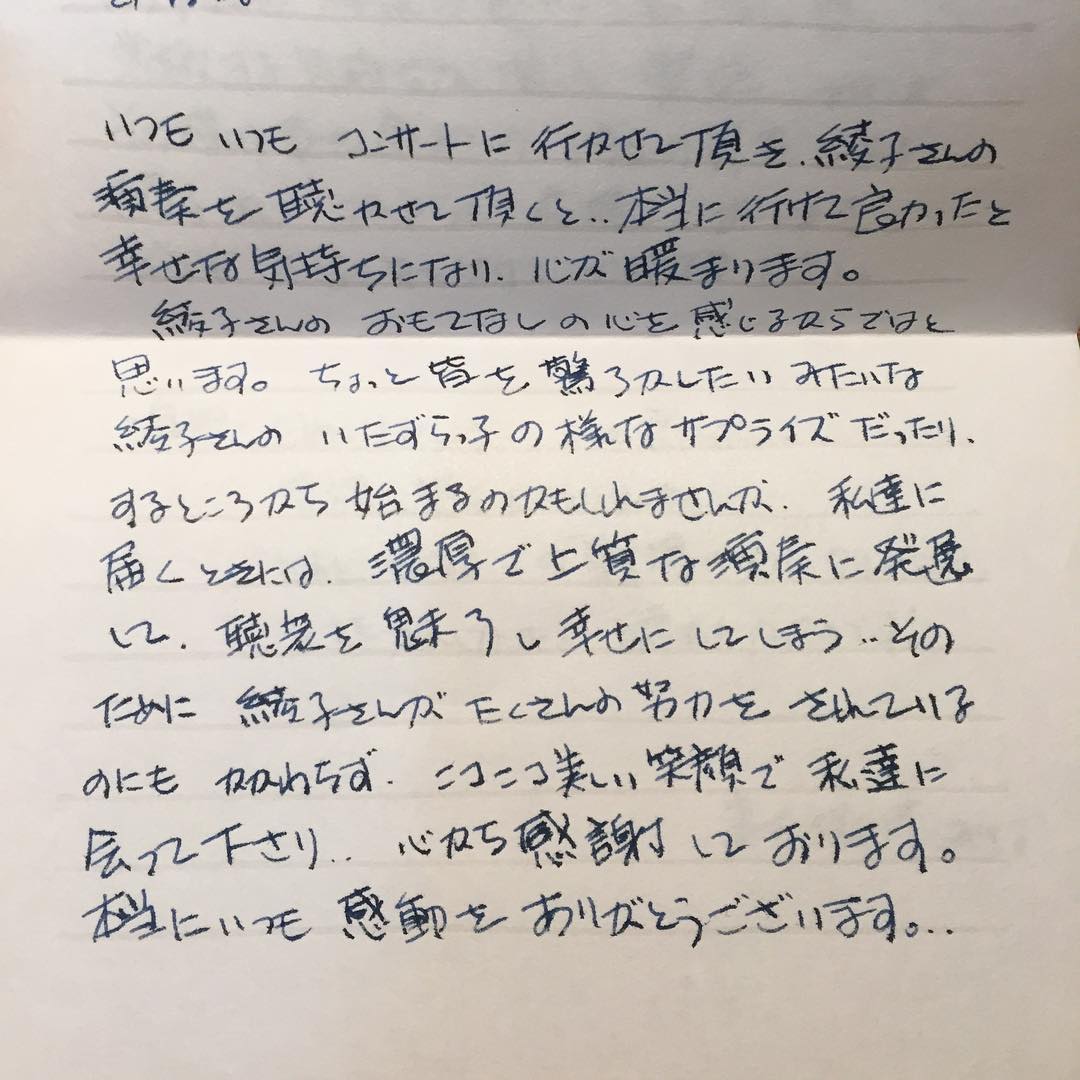 いつも いつも コンサートに 行かせて頂き、綾子さんの
演奏を 聴かせて頂くと‥本当に行けて良かったと
幸せな気持ちになり、心が暖まります。
綾子さんの おもてなしの心を 感じるからではと
思います。ちょっと皆を 驚ろかしたい みたいな
綾子さんの いたずらっ子の 様な サプライズ だったり、
するところから 始まるのかもしれませんが、私達に
届くときには、濃厚で上質な演奏に発展
して、聴衆を 魅了し 幸せに してしまう‥その
ために 綾子さんが たくさんの努力を されている
のにも かかわらず、ニコニコ美しい笑顔で 私達に
会って下さり‥ 心から感謝して おります。
本当にいつも 感動を ありがとうございます。‥